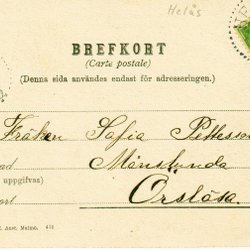 Helås
BREFKORT
(Carte postale)
(Denna sida användes endast för adresseringen.)
Fröken Sofia Petterso
ad Månslunda
uppgifvas)
ort Örslösa
t. Anst. Malmö.